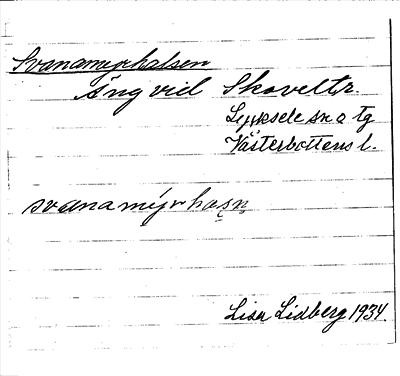 Svanamyrhalsen
Äng vid Skoveltr.
Lycksele sn o tg
Västerbottens l.
svanamýrhaşņ
Lisa Lidberg 1934.